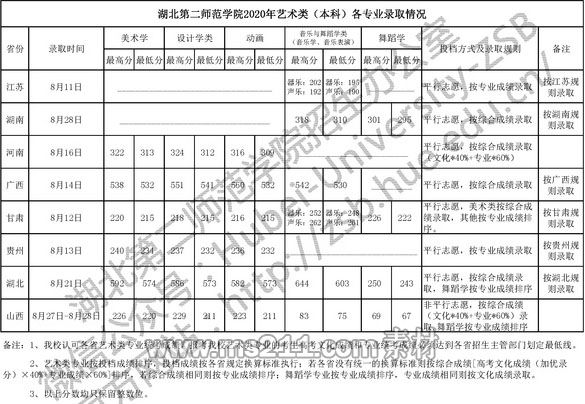 湖北第二师范学院2020年艺术类（本科）各专业录取情况
省份 录取时间 美术学 设计学类 动画 音乐与舞蹈学类（音乐学、音乐表演） 舞蹈学 投档方式及录取规则
最高分 最低分 最高分 最低分 最高分 最低分 最高分 最低分 最高分 最低分
江苏 8月11日 器乐：202 声乐：192 器乐：195 声乐：190 平行志愿，按专业成绩录取 按江苏规则录取
湖南 8月28日 318 310 301 295 平行志愿，按综合成绩录取 按湖南规则录取
河南 8月16日 322 313 324 312 316 309 平行志愿，按综合成绩录取（文化*40%+专业*60%）
广西 8月14日 538 532 551 541 560 532 542 530 平行志愿，按综合成绩录取 按广西规则录取
甘肃 8月12日 220 215 218 215 216 215 器乐：252 声乐：262 器乐：248 声乐：261 226 222 平行志愿，美术类按综合成绩录取，其他按专业成绩排序。 按甘肃规则录取
贵州 8月13日 240 234 237 232 236 232 平行志愿，按专业成绩录取 按贵州规则录取
湖北 8月21日 592 574 586 573 582 573 644 603 250 243 平行志愿，按综合成绩录取，舞蹈学按专业成绩排序 按湖北规则录取
山西 8月27日-8月28日 226 220 229 211 223 211 83 75 69 67 非平行志愿，按综合成绩（文化*40%+专业*60%）录取，舞蹈学按专业成绩排序
备注：1、我校认可各省艺术类专业统考成绩，报考我校艺术类专业的考生高考文化成绩和专业统考成绩必须达到各省招生主管部门划定最低线。
2、艺术类专业按投档成绩排序，投档成绩按各省规定换算标准执行；若各省没有统一的换算标准则按综合成绩[高考文化成绩（加优录
分）×40%+专业成绩×60%]排序，若综合成绩相同则按专业成绩排序；舞蹈学专业按专业成绩排序，专业成绩相同则按文化成绩录取。
3、以上分数均只保留整数位。
湖北第二师范学院招生办公室
微信公众号：Hubei-University-ZSB
http://zsb.hue.edu.cn/
www.ms211.com 素材